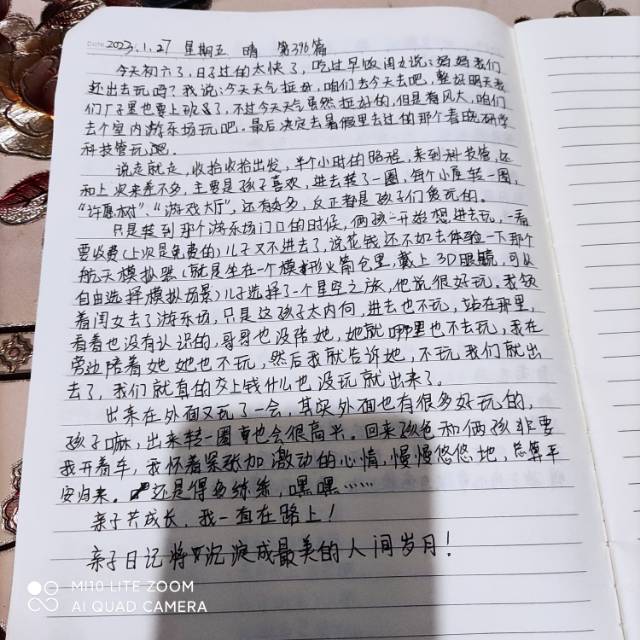 DATE 2023.1.27 星期五 晴 第376篇
今天初六了,日子过的太快了,吃过早饭闺女说:妈妈我们
赶出去玩吗?我说:今天天气挺好,咱们去今天去吧,整好明天我
们厂子里也要上班了,不过今天天气虽然挺好的,但是有风大,咱们
去个室内游乐场玩吧。最后决定去暑假里去过的那个看晓研学
科技管玩吧。
说走就走,收拾收拾出发,半个小时的路程,来到科技管,还
和上次来差不多,主要是孩子喜欢,进去转了一圈,每个小屋转一圈,
“许愿树”、“游戏大厅”,还有好多,反正都是孩子们爱玩的。
只是转到那个游乐场门口的时候,俩孩一开始想进去玩,一看
要收费(上次是免费的)儿子又不进去了,说花钱还不如去体验一下那个
航天模拟器(就是坐在一个模拟火箭仓里,戴上3D眼镜,可以
自由选择模拟场景)儿子选择了一个星空之旅,他说很好玩。我领
着闺女去了游乐场,只是这孩子太内向,进去也不玩,站在那里,
看着也没有认识的,哥哥也没陪她,她就哪里也不去玩,我在
旁边陪着她她也不玩,然后我就告诉她,不玩我们就出
去了,我们就真的交上钱什么也没玩就出来了。
出来在外面又玩了一会,其实外面也有很多好玩的,
孩子嘛,出来转一圈也会很高兴。回来孩爸和俩孩非要
我开着车,我怀着紧张加激动的心情,慢慢悠悠地,总算平
安归来。还是得多练练,嘿嘿……
亲子共成长,我一直在路上!
亲子日记将沉淀成最美的人间岁月!
MI 10 LITE ZOOM
AI QUAD CAMERA